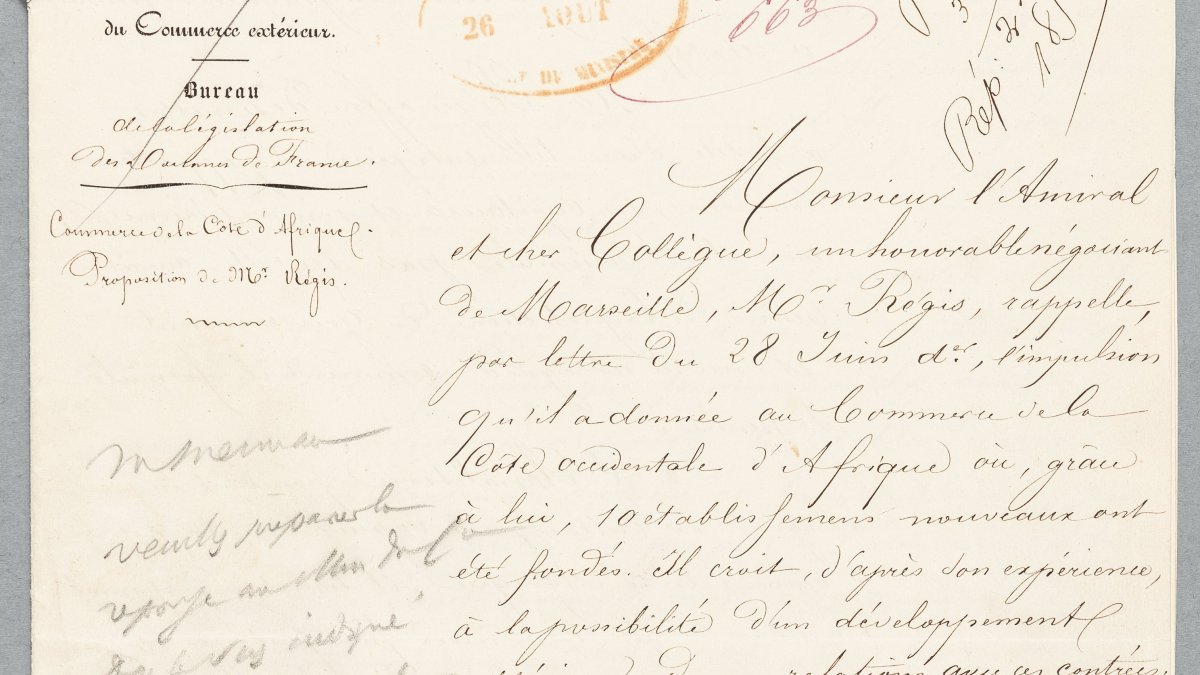 du Commerce extérieur.
Bureau
de la législation
des Douanes de France.
Commerce de la Côte d'Afrique.
Proposition de Mr. Régis.
26 AOUT
DU MINIST
663
Rép.
Monsieur l'Amiral
et cher Collègue, un honorable négociant
de Marseille, Mr. Régis, rappelle,
par lettre du 28 Juin der, l'impulsion
qu'il a donnée au Commerce de la
Côte occidentale d'Afrique où, grâce
à lui, 10 établissemens nouveaux ont
été fondés. Il croit, d'après son expérience,
à la possibilité d'un développement
relations avec ces contrées.
veuillez préparer la
réponse au